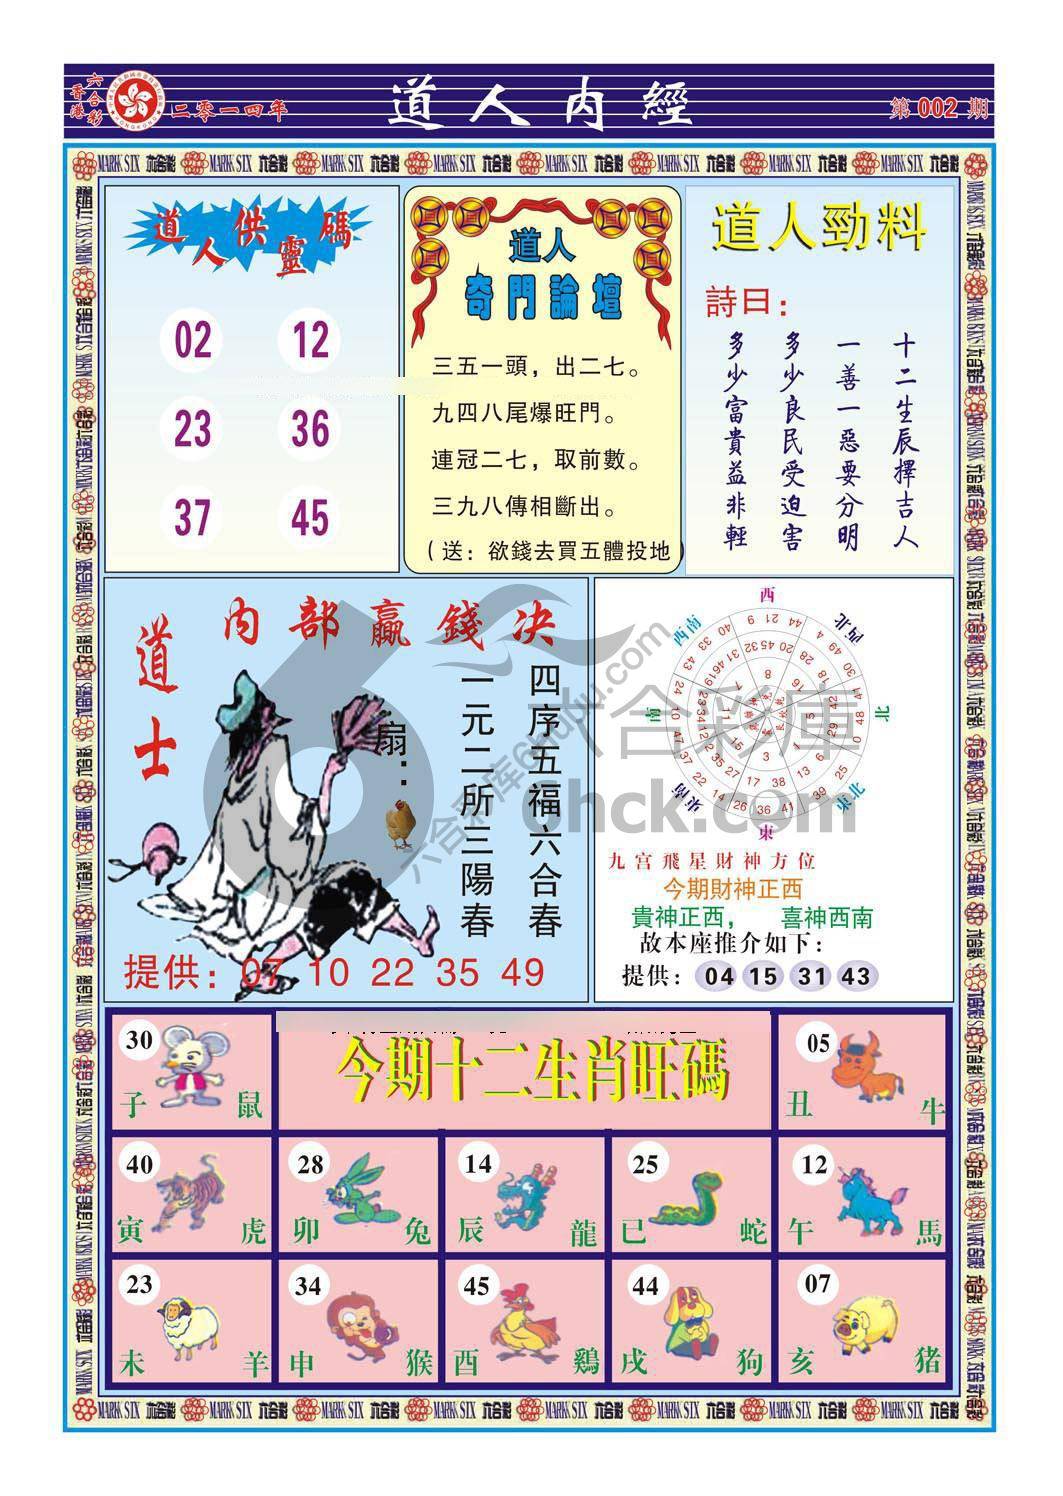 香港
六合彩
二零一四年
道人内經
第 002 期
道人供靈碼
02 12
23 36
37 45
道人
奇門論壇
三五一頭，出二七。
九四八尾爆旺門。
連冠二七，取前數。
三九八傳相斷出。
（送：欲錢去買五體投地）
道人勁料
詩曰：
十二生辰擇吉人
一善一惡要分明
多少良民受迫害
多少富貴益非輕
道士
内部贏錢决
四序五福六合春
一元二所三陽春
扇：
提供：07 10 22 35 49
西
西北
北
東北
東
東南
南
西南
九宫飛星財神方位
今期財神正西
貴神正西， 喜神西南
故本座推介如下：
提供：04 15 31 43
今期十二生肖旺碼
30 子 鼠
05 丑 牛
40 寅 虎
28 卯 兔
14 辰 龍
25 巳 蛇
12 午 馬
23 未 羊
34 申 猴
45 酉 鷄
44 戌 狗
07 亥 猪
MARK SIX 六合彩
六合彩庫
6hck.com